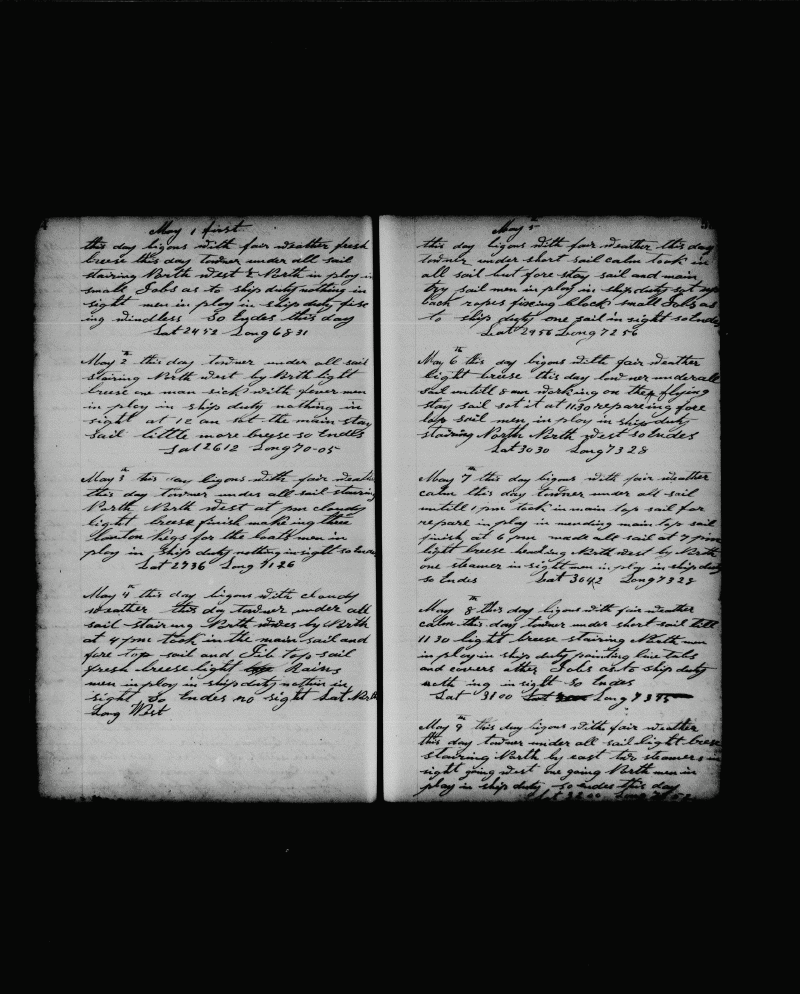 May 1 first
this day ligons with fair weather fresh
breese this day towner under all sail
stairing North West & North in ploy in
small Jobs as to ship duty nothing in
sight men in ploy in ship duty fixe
ing windless So Endes this day
Lat 2452 Long 6831
May 2 this day towner under all sail
stairing North West by North light
breese one man sick with fever men
in ploy in ship duty nothing in
sight at 12 am set the main stay
sail little more breese so Endes
Lat 2612 Long 70-05
May 3 this day ligons with fair weather
this day towner under all sail stairing
North, North West at pm cloudy
light breese finish makeing three
Kegs for the boats men in
ploy in ship duty nothing in sight so Endes
Lat 2736 Long 7126
May 4 this day ligons with cloudy
weather this day towner under all
sail stairing North wves by North
at 4 pm took in the main sail and
fore top sail and Jib top sail
fresh breese light Rains
men in ploy in ship duty nothin in
sight So Endes no sight Lat North
Long West
May 5
this day ligons with fair weather this day
towner under short sail calm took in
all sail but fore stay sail and main
try sail men in ploy in ship duty set up
back ropes fixing blocks small Jobs as
to ship duty one sail in sight so Endes
Lat 2956 Long 7256
May 6 th this day ligons with fair weather
light breese this day towner under all
sail untill 8 am working on the flying
stay sail set it at 1130 repareing fore
top sail men in ploy in ship duty
stairing North North West so Endes
Lat 3030 Long 7328
May 7 this day ligons with fair weather
calm this day towner under all sail
untill 1 pm took in main top sail for
repare in ploy in mending main top sail
finish at 6 pm made all sail at 7 pm
light breese heading North West by North
one steamer in sight men in ploy in ship duty
so Endes Lat 3042 Long 7328
May 8 this day ligons with fair weather
calm this day towner under short sail till
1130 light breese stairing North men
in ploy in ship duty painting line tubs
and covers other Jobs as to ship duty
noth ing in sight so Endes
Lat 3100 Long 7375
May 9 this day ligons with fair weather
this day towner under all sail light breese
stairing North by east two steamers in
sight going West one going North men in
ploy in ship duty so endes this day